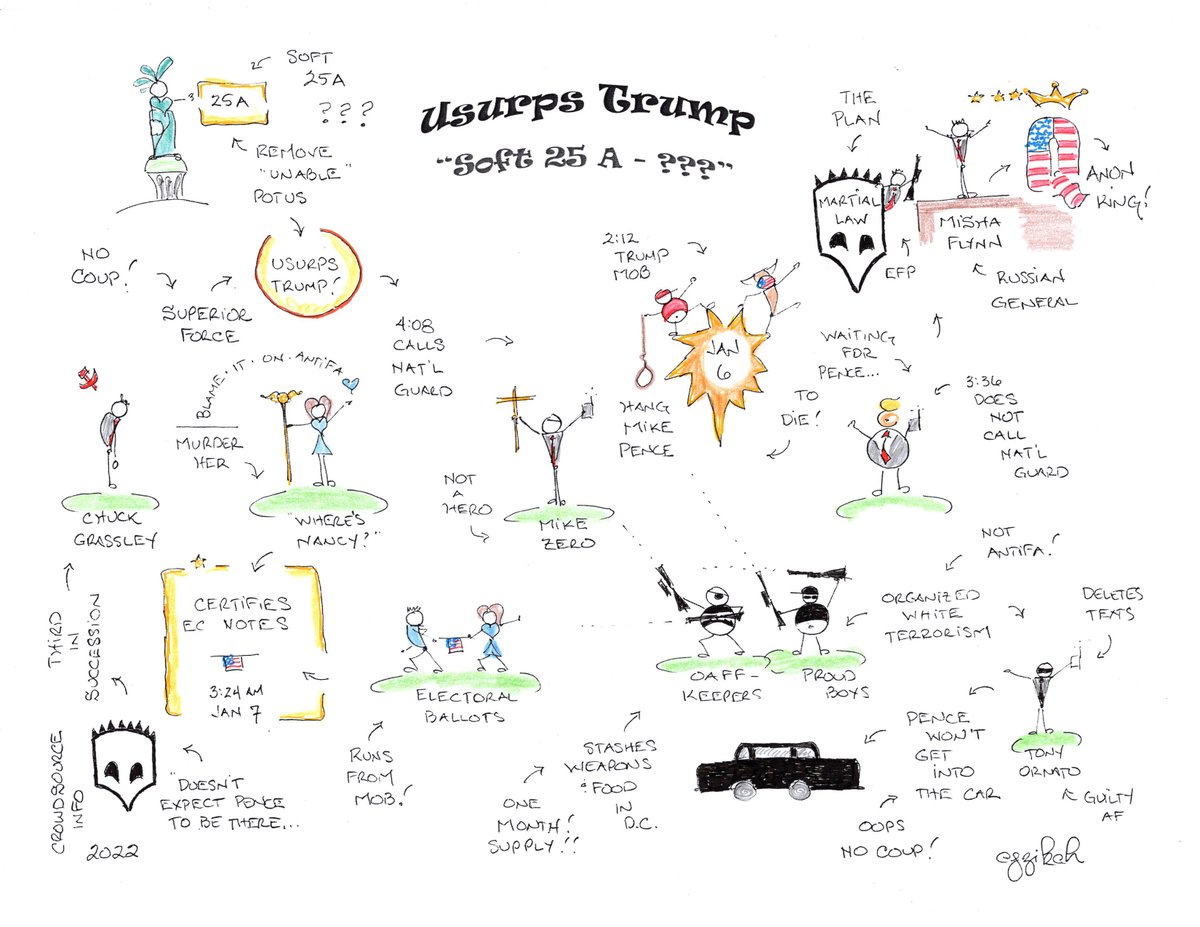 Usurps Trump
"Soft 25 A - ???"
SOFT
25A
???
25A
REMOVE
"UNABLE"
POTUS
NO
COUP!
USURPS
TRUMP!
SUPERIOR
FORCE
4:08
CALLS
NAT'L
GUARD
THE
PLAN
MARTIAL
LAW
EFP
MISHA
FLYNN
Q
ANON
KING!
RUSSIAN
GENERAL
2:12
TRUMP
MOB
JAN
6
HANG
MIKE
PENCE
WAITING
FOR
PENCE...
TO
DIE!
3:36
DOES
NOT
CALL
NAT'L
GUARD
BLAME·IT·ON·ANTIFA
MURDER
HER
CHUCK
GRASSLEY
"WHERE'S
NANCY?"
NOT
A
HERO
MIKE
ZERO
NOT
ANTIFA!
ORGANIZED
WHITE
TERRORISM
DELETES
TEXTS
THIRD
IN
SUCCESSION
CERTIFIES
EC NOTES
3:24 AM
JAN 7
ELECTORAL
BALLOTS
OAFF-
KEEPERS
PROUD
BOYS
TONY
ORNATO
GUILTY
AF
PENCE
WON'T
GET
INTO
THE CAR
OOPS
NO COUP!
STASHES
WEAPONS
& FOOD
IN
D.C.
ONE
MONTH!
SUPPLY!!
RUNS
FROM
MOB!
"DOESN'T
EXPECT PENCE
TO BE THERE...
CROWDSOURCE
INFO
2022